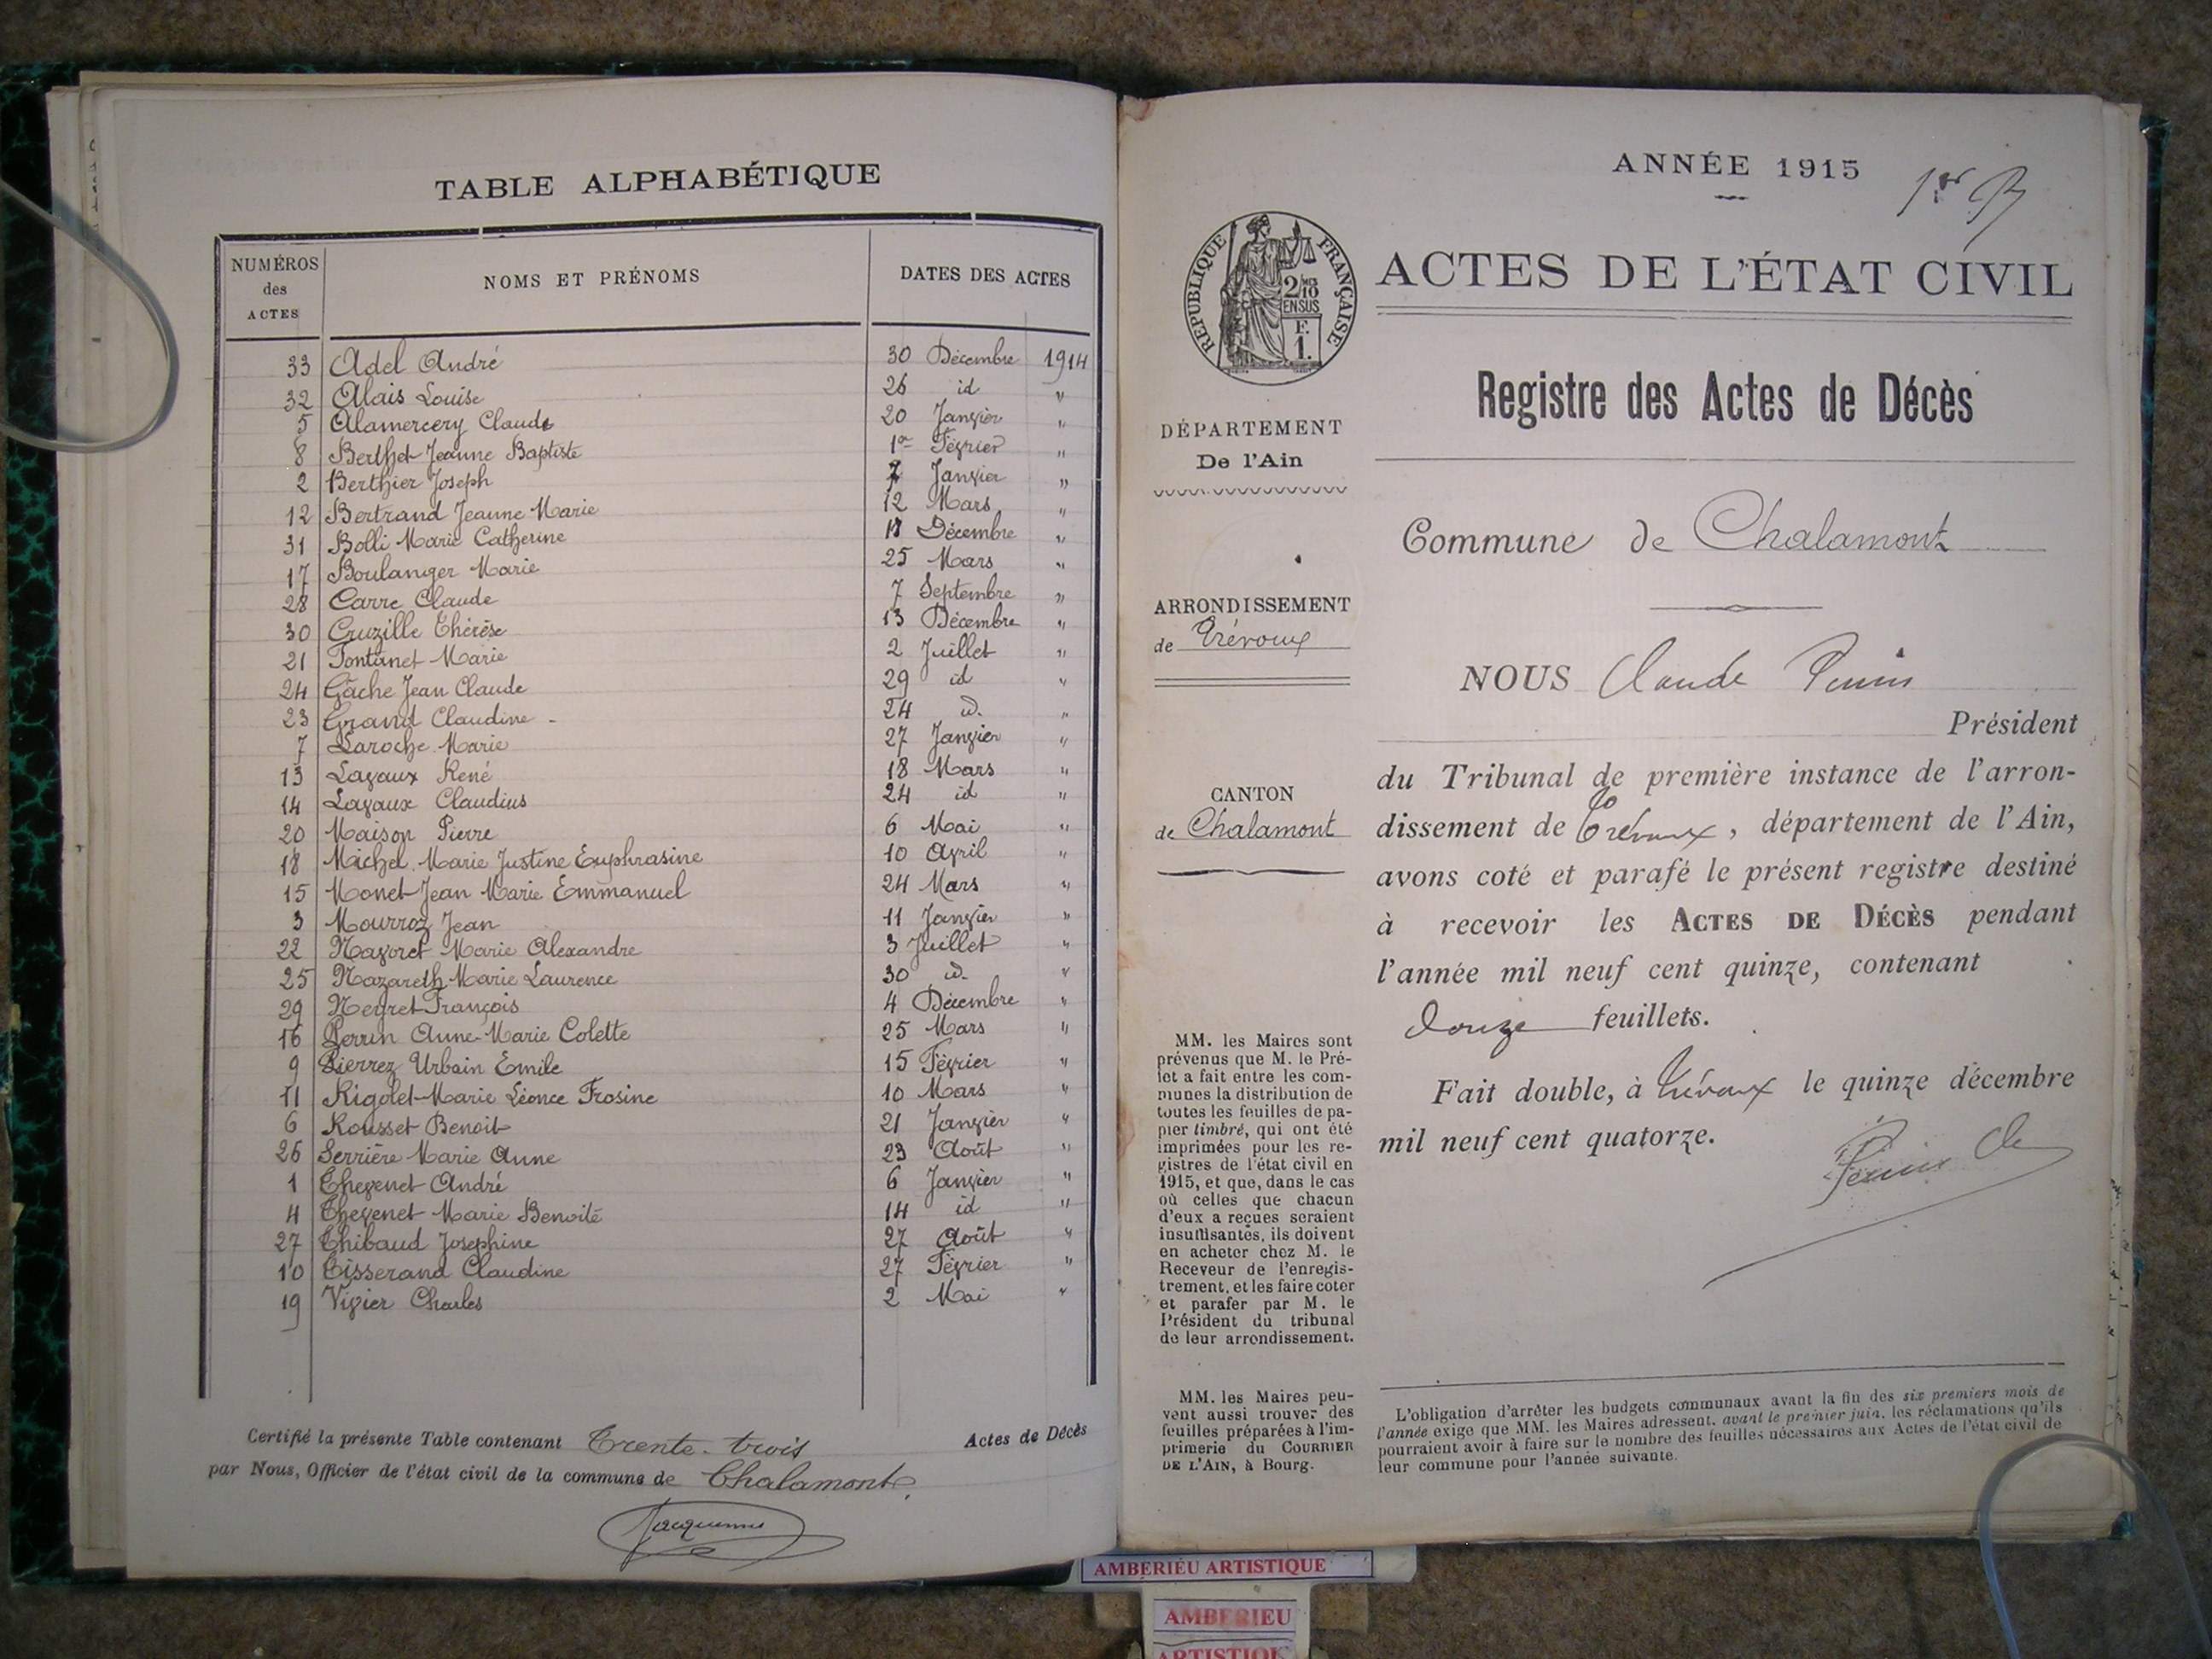 TABLE ALPHABÉTIQUE
NUMÉROS des ACTES NOMS ET PRÉNOMS DATES DES ACTES
33 Adel André 30 Décembre 1914
32 Alais Louise 26 id "
5 Alamercery Claude 20 Janvier "
8 Berthet Jeanne Baptiste 1er Février "
2 Berthier Joseph 7 Janvier "
12 Bertrand Jeanne Marie 12 Mars "
31 Bolli Marie Catherine 18 Décembre "
17 Boulanger Marie 25 Mars "
28 Carre Claude 7 Septembre "
30 Cruzille Thérèse 13 Décembre "
21 Fontanet Marie 2 Juillet "
24 Gâche Jean Claude 29 id "
23 Grand Claudine - 24 id. "
7 Laroche Marie 27 Janvier "
13 Lavaux René 18 Mars "
14 Lavaux Claudius 24 id "
20 Maison Pierre 6 Mai "
18 Michel Marie Justine Euphrasine 10 Avril "
15 Monet Jean Marie Emmanuel 24 Mars "
3 Mourroz Jean 11 Janvier "
22 Navoret Marie Alexandre 3 Juillet "
25 Nazareth Marie Laurence 30 id. "
29 Neyret François 4 Décembre "
16 Perrin Anne-Marie Colette 25 Mars "
9 Pierrez Urbain Emile 15 Février "
11 Rigolet Marie Léonce Frosine 10 Mars "
6 Rousset Benoit 21 Janvier "
26 Serrière Marie Anne 23 Août "
1 Thevenet André 6 Janvier "
4 Thevenet Marie Benoite 14 id "
27 Thibaud Josephine 27 Août "
10 Tisserand Claudine 27 Février "
19 Vivier Charles 2 Mai "
Certifié la présente Table contenant Trente-trois Actes de Décès
par Nous, Officier de l'état civil de la commune de Chalamont.
ANNÉE 1915
1er
RÉPUBLIQUE FRANÇAISE
2/10
EN SUS
F.
1.
ACTES DE L'ÉTAT CIVIL
Registre des Actes de Décès
DÉPARTEMENT
De l'Ain
Commune de Chalamont
ARRONDISSEMENT
de Trévoux
CANTON
de Chalamont
NOUS Claude Perrin
Président
du Tribunal de première instance de l'arron-
dissement de Trévoux, département de l'Ain,
avons coté et parafé le présent registre destiné
à recevoir les ACTES DE DÉCÈS pendant
l'année mil neuf cent quinze, contenant
douze feuillets.
Fait double, à Trévoux le quinze décembre
mil neuf cent quatorze.
MM. les Maires sont
prévenus que M. le Pré-
fet a fait entre les com-
munes la distribution de
toutes les feuilles de pa-
pier timbré, qui ont été
imprimées pour les re-
gistres de l'état civil en
1915, et que, dans le cas
où celles que chacun
d'eux a reçues seraient
insuffisantes, ils doivent
en acheter chez M. le
Receveur de l'enregis-
trement, et les faire coter
et parafer par M. le
Président du tribunal
de leur arrondissement.
MM. les Maires peu-
vent aussi trouver des
feuilles préparées à l'im-
primerie du COURRIER
DE L'AIN, à Bourg.
L'obligation d'arrêter les budgets communaux avant la fin des six premiers mois de
l'année exige que MM. les Maires adressent, avant le premier juin, les réclamations qu'ils
pourraient avoir à faire sur le nombre des feuilles nécessaires aux Actes de l'état civil de
leur commune pour l'année suivante.
AMBERIEU ARTISTIQUE
AMBERIEU